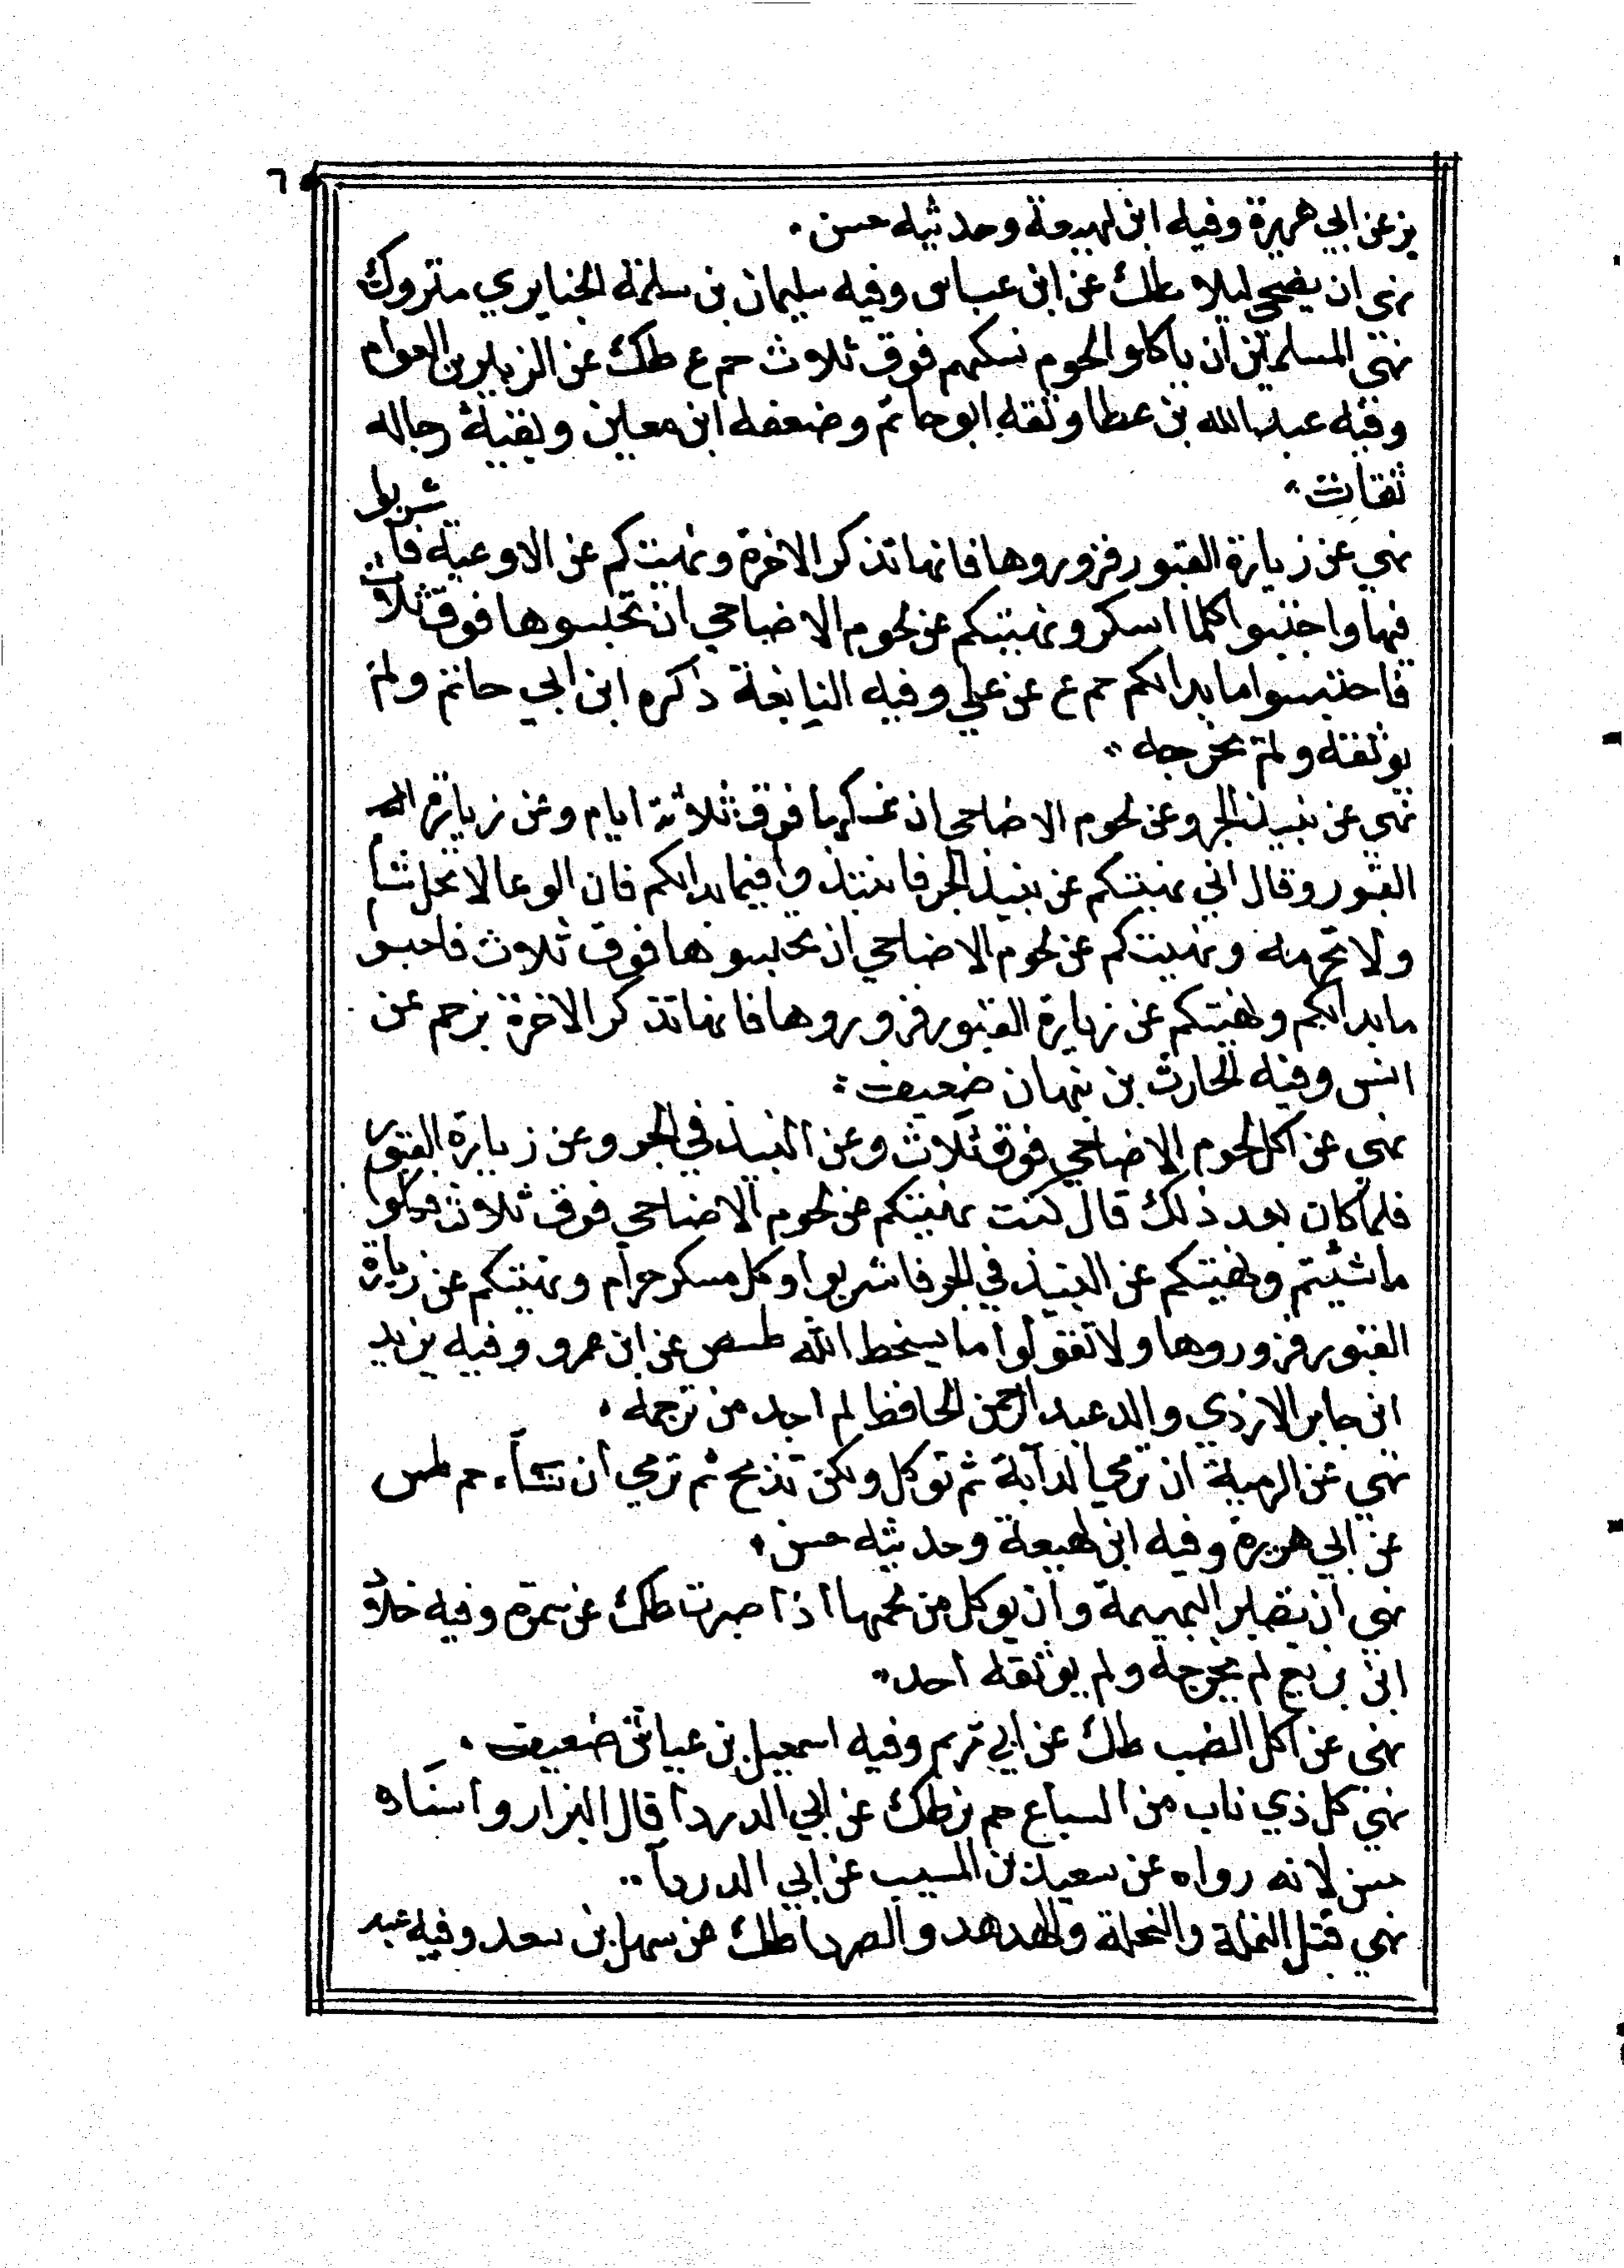 ٦
بز عن ابي هريرة وفيه ابن لهيعة وحديثه حسن
نهي ان يضحي ليلا طك عن ابن عباس وفيه سليمان بن سلمة الخبايري متروك
نهي المسلمين ان ياكلوا لحوم نسكهم فوق ثلاث حم ع طك عن الزبير بن العوام
وفيه عبد الله بن عطا وثقه ابو حاتم وضعفه ابن معين وبقية رجاله
ثقات
نهي عن زيارة القبور فزوروها فانها تذكر الاخرة ونهيتكم عن الاوعية فاشربوا
فيها واجتنبوا كلما اسكر ونهيتكم عن لحوم الاضاحي ان تحبسوها فوق ثلاث
فاحتبسوا ما بدالكم حم ع عن علي وفيه النابغة ذكره ابن ابي حاتم ولم
يوثقه ولم يخرجه
نهي عن نبيذ الجر وعن لحوم الاضاحي ان فوق ثلاثة ايام وعن زيارة
القبور وقال اني نهيتكم عن نبيذ الجر فانتبذوا فيما بدالكم فان الوعا لا يحل شيا
ولا يحرمه ونهيتكم عن لحوم الاضاحي ان تحبسوها فوق ثلاث فاحبسوا
ما بدالكم ونهيتكم عن زيارة القبور فزوروها فانها تذكر الاخرة بز حم عن
انس وفيه الحارث بن نبهان ضعيف
نهي عن اكل لحوم الاضاحي فوق ثلاث وعن النبيذ في الجر وعن زيارة القبور
فلما كان بعد ذلك قال كنت نهيتكم عن لحوم الاضاحي فوق ثلاث فكلوا
ما شيتم ونهيتكم عن النبيذ في الجر فاشربوا وكل مسكر حرام ونهيتكم عن زيارة
القبور فزوروها ولا تقولوا ما يسخط الله طسص عن ابن عمرو وفيه يزيد
ابن جابر الازدي والد عبد الرحمن الحافظ لم اجد من ترجمه
نهي عن الرمية ان ترمي الدابة ثم توكل ولكن تذبح ثم ترمي ان شاء حم طس
عن ابي هريرة وفيه ابن لهيعة وحديثه حسن
نهي ان تصبر البهيمة وان يوكل من لحمها اذا صبرت طك عن سمرة وفيه خلاد
ابن بزيع لم يجرحه ولم يوثقه احد
نهي عن اكل الضب طك عن ابي مريم وفيه اسمعيل بن عياش ضعيف
نهي كل ذي ناب من السباع حم بز طك عن ابي الدردا قال البزار واسناده
حسن لانه رواه عن سعيد بن المسيب عن ابي الدردآ
نهي قتل النملة والنحلة والهدهد والصرد طك عن سهل بن سعد وفيه عبد